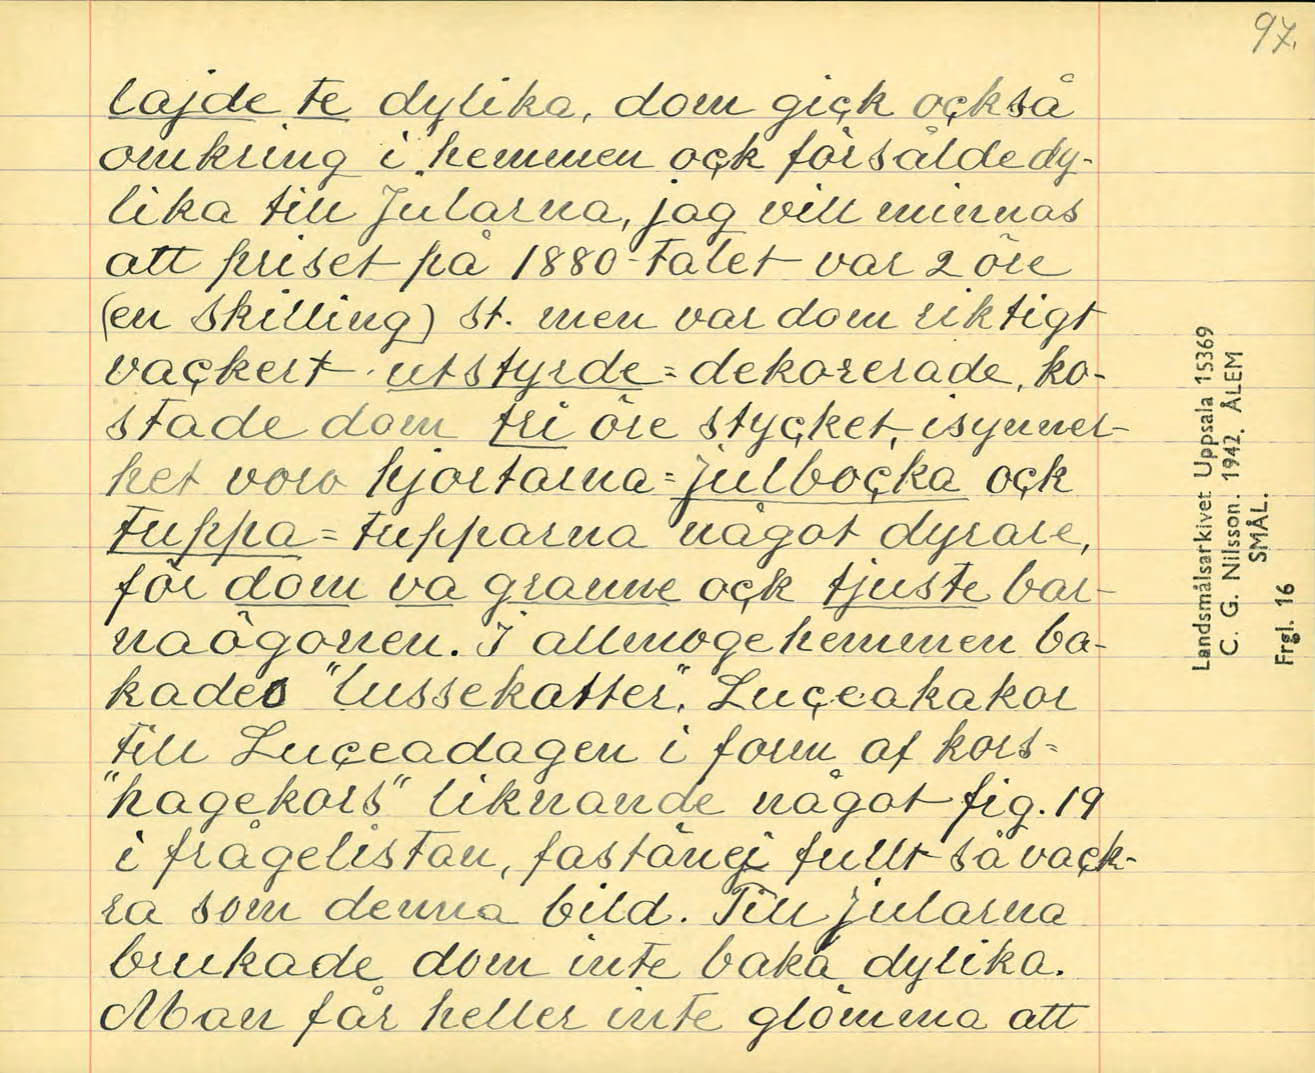 97.
lajde te dylika, dom giçk oçkså
omkring i hemmen oçk försålde dy-
lika till Jularna, jag vill minnas
att priset på 1880-talet var 2 öre
(en skilling) st. men var dom riktigt
vaçkert utstyrde = dekorerade, ko-
stade dom tri öre styçket, isynner-
het voro hjortarna = julboçka oçk
tuppa = tupparna något dyrare,
för dom va granne oçk tjuste bar-
naögonen. I allmogehemmen ba-
kades "lussekatter", Luçeakakor
till Luçeadagen i form af kors =
"hagekors" liknande något fig. 19
i frågelistan, fastän ej fullt så vaçk-
ra som denna bild. Till jularna
brukade dom inte baka dylika.
Man får heller inte glömma att
Landsmålsarkivet Uppsala 15369
C. G. Nilsson. 1942. ÅLEM
SMÅL.
Frgl. 16